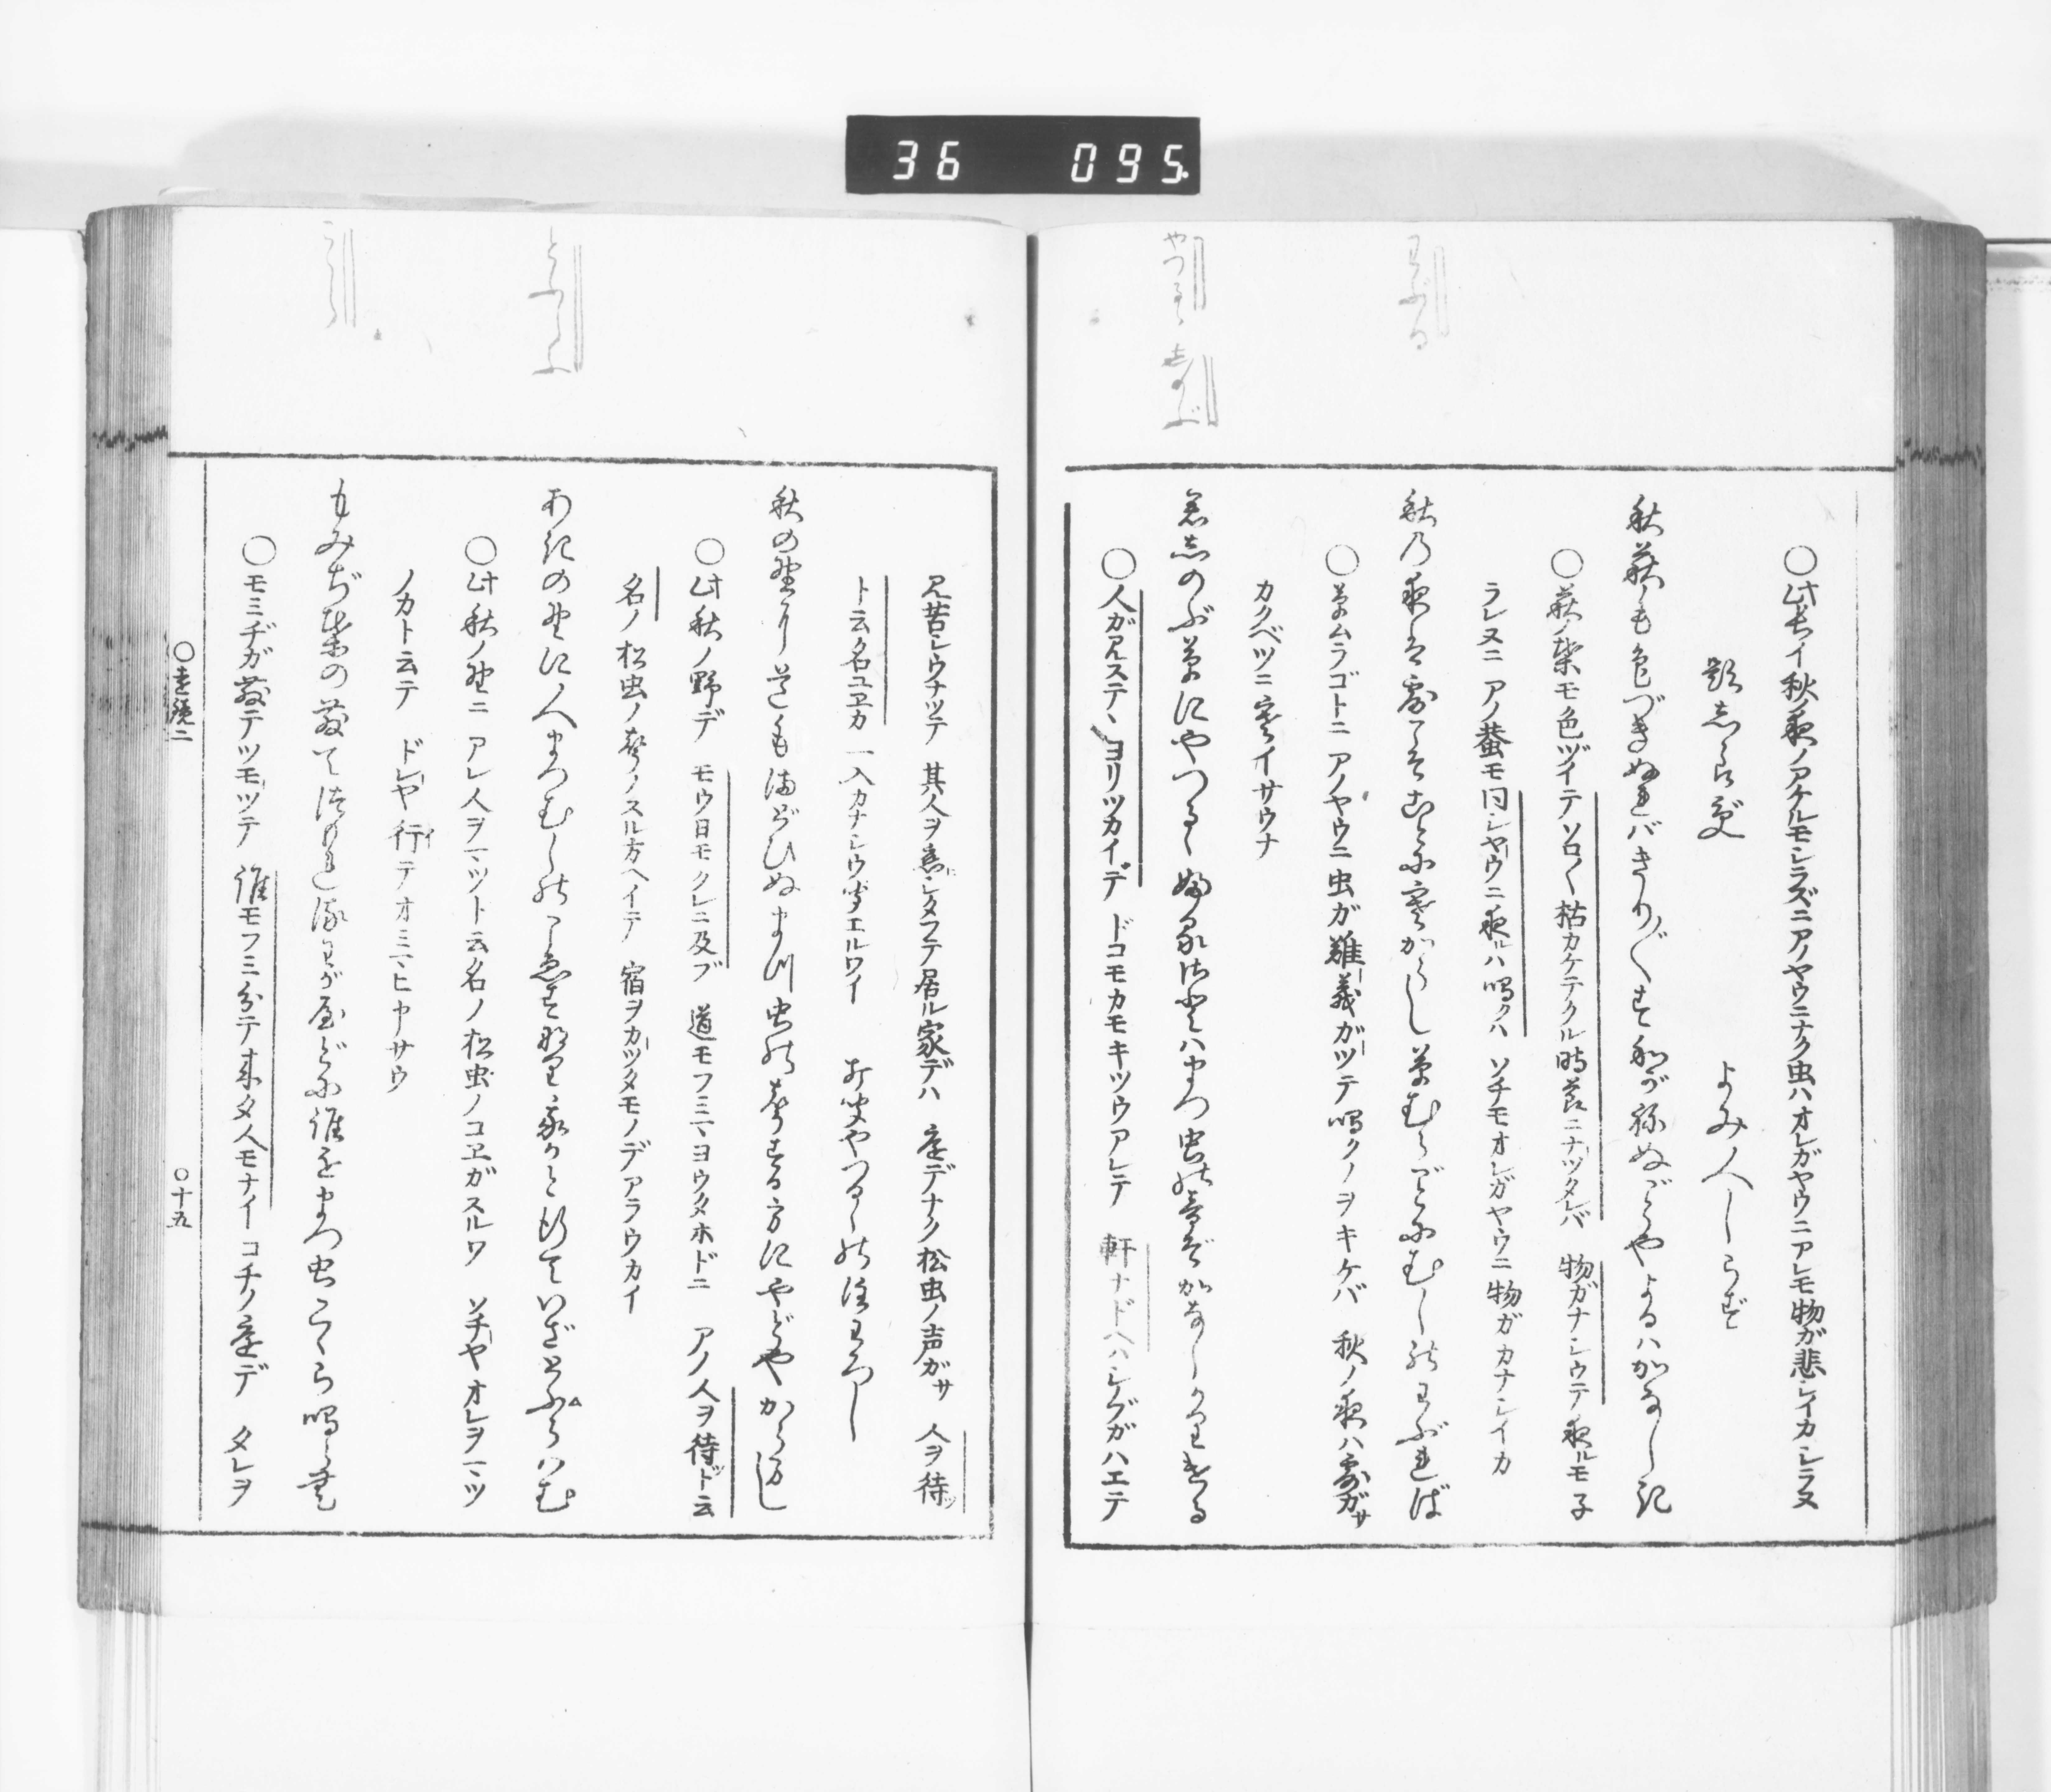 36 095.
わぶる
やつるゝ 志のぶ
○此長イ秋ノ夜ノアケルモシラズニアノヤウニナク虫ハオレガヤウニアレモ物ガ悲シイカシラヌ
題志らず よみ人しらず
秋萩も色づきぬればきり〴〵す我が祢ぬごとやよるハかなしき
○萩ノ葉モ色ヅイテソロ〳〵枯カケテクル時節ニナツタレバ 物ガナシウテ夜ルモ子
ラレヌニ アノ蛬モ同シヤウニ夜ルハ鳴クハ ソチモオレガヤウニ物ガカナシイカ
秋乃夜は露こそことに寒からし草むらごとにむしのわぶれば
○草ムラゴトニアノヤウニ虫ガ難義ガツテ鳴クノヲキケバ 秋ノ夜ハ露ガサ
カクベツニ寒イサウナ
君志のぶ草にやつるゝ婦る佐とハまつ虫の音ぞかなしかりける
○人ガ見ステヽヨリツカイデ ドコモカモキツウアレテ 軒ナドヘハシノブガハエテ
見苦シウナツテ 其人ヲ恋シタフテ居ル家デハ 庭デナク松虫ノ声ガサ 人ヲ待ツ
ト云名ユヱカ 一入カナシウ聞エルワイ 打聞やつるゝの注わろし
秋の野に道も満どひぬまつ虫の聲する方にやどやからまし
○此秋ノ野デ モウ日モクレニ及ブ 道モフミマヨウタホドニ アノ人ヲ待ツト云
名ノ松虫ノ聲ノスル方ヘイテ 宿ヲカツタモノデアラウカイ
あきの野に人まつむしのこゑす那り我かと行ていざとふらハむ
○此秋ノ野ニ アレ人ヲマツト云名ノ松虫ノコヱガスルワ ソチヤオレヲマツ
ノカト云テ ドレヤ行テオミマヒ申サウ
もみぢ葉の散てつもれる我が屋どに誰をまつ虫こゝら鳴らむ
○モミヂガ散テツモツテ 誰モフミ分テ来タ人モナイ コチノ庭デ タレヲ
とふらふ
こゝら
○遠鏡二 ○十五